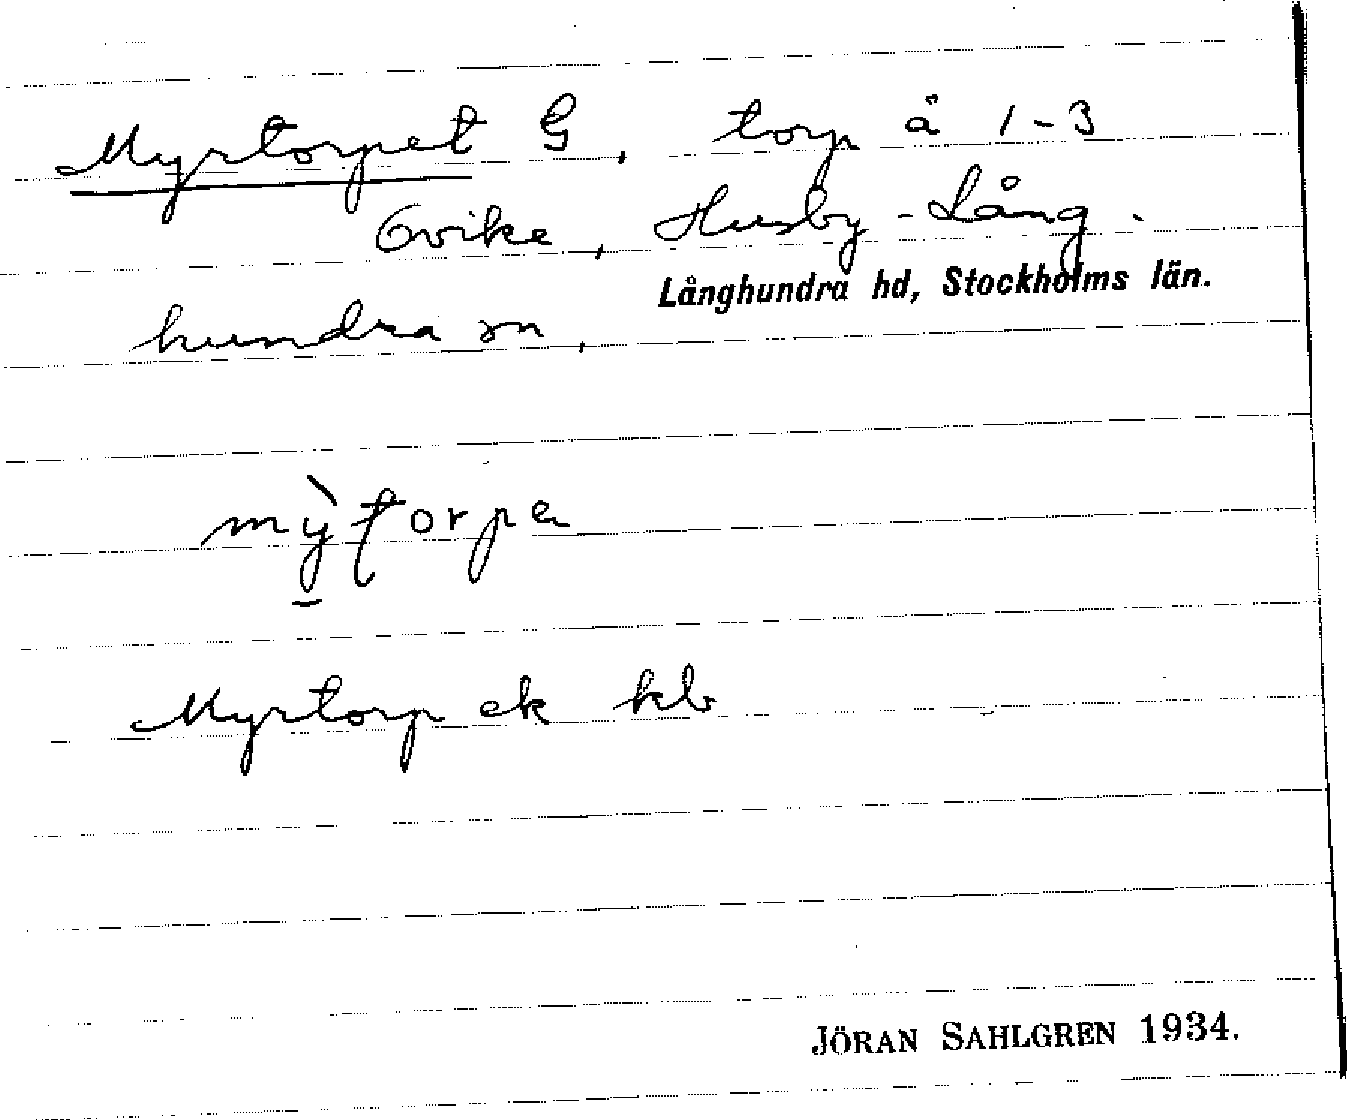 Myrtorpet G, torp å 1-3
Övike, Husby-Lång-
Långhundra hd, Stockholms län.
hundra sn,
mỳtorpa
Myrtorp ek kb
JÖRAN SAHLGREN 1934.